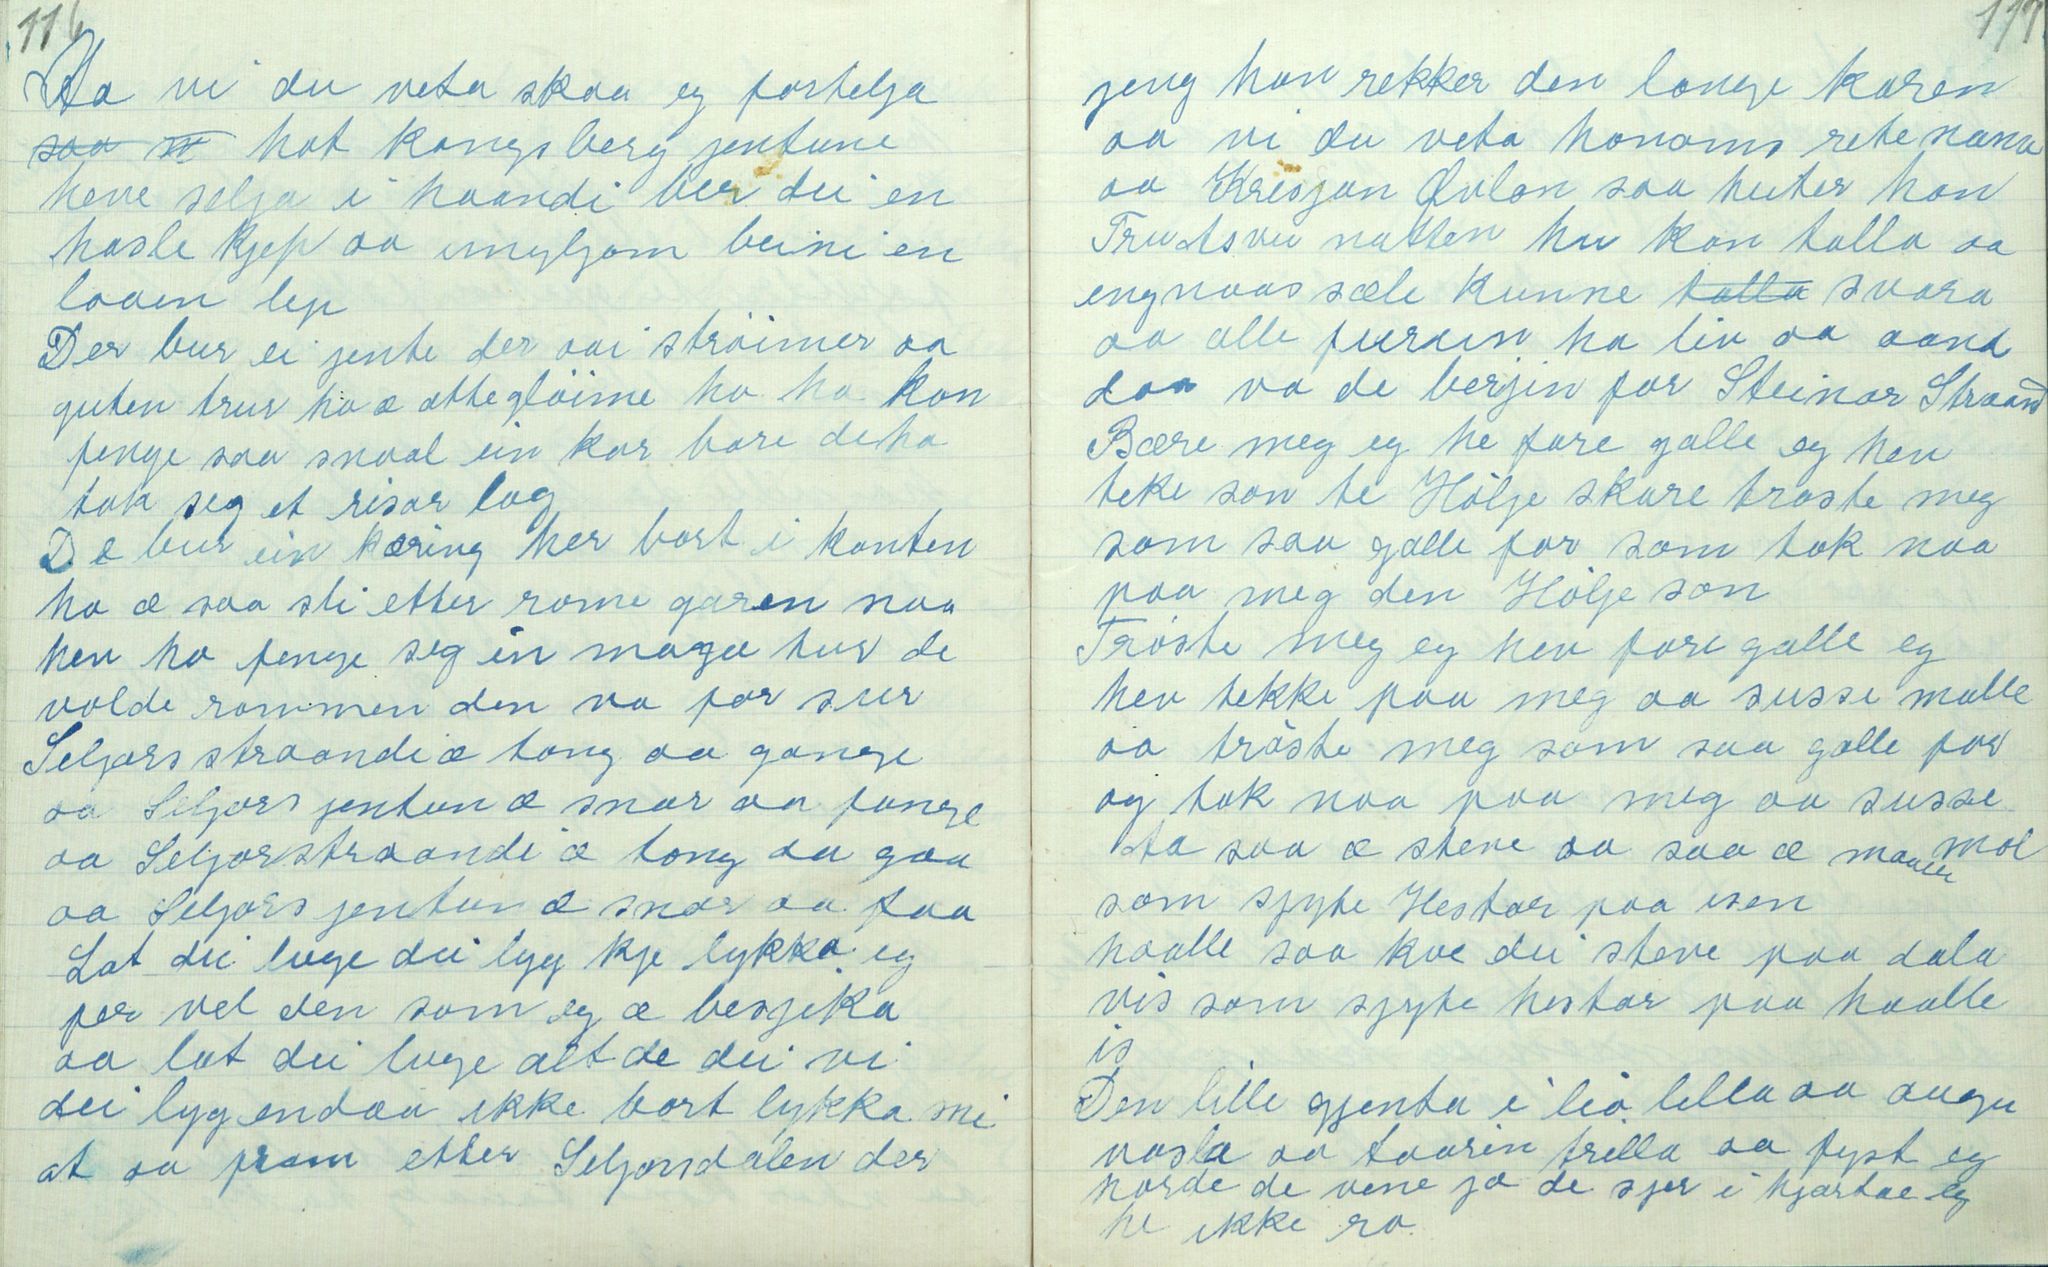 116
Aa vi du veta skaa eg fortelja
saa hot kongsberg jentune
heve selja i haandi ber dei en
hasle kjep aa imyljom beini en
loden lep
Der bur ei jente der aai ströimer aa
guten trur ho æ attegløime ho ho kan
fenge saa snaal ein kar bare de ho
tok seg et risar lag
D æ bur ein kæring her bort i kanten
ho æ saa sli etter rome garen naa
hev ho fenge seg ein maga tur de
volde rommen den va for sur
Seljors straandi æ tong aa gange
aa Seljors jentun æ snar aa fange
aa Seljorstraandi æ tong aa gaa
aa Seljors jentun æ snar aa faa
Lat dei luge dei lyg kje lykka eg
fær vel den som eg æ besjika
aa lat dei luge alt de dei vi
dei lyg endaa ikke bort lykka mi
at aa fram etter Seljorsdalen der
117
jeng han rekker den lange karen
aa vi du veta honoms rette namn
aa Kresjan Qvlan saa heiter han
natten hu kan talla aa
sæle kunne talla svara
aa alle fureun ha liv aa aand
daa va de berjin for Steinar Straand
Bære meg eg he fare galle eg hev
teke son te Hölje skare trøste meg
som saa galle for som tok naa
paa meg den Hölje son
Trøste meg eg hev fare galle eg
hev tekke paa meg aa susse malle
aa trøste meg som saa galle for
og tok naa paa meg aa susse mol
ta saa æ steve aa saa æ maaten
som spyte Hestar paa isen
haalle saa kve dei steve paa dala
vis som spyte hestar paa haalle
is
Den lille gjenta i liö lilla aa augu
vasla aa taarin trilla aa fyst eg
horde de vene jo de sjer i hjartæ eg
he ikke ro